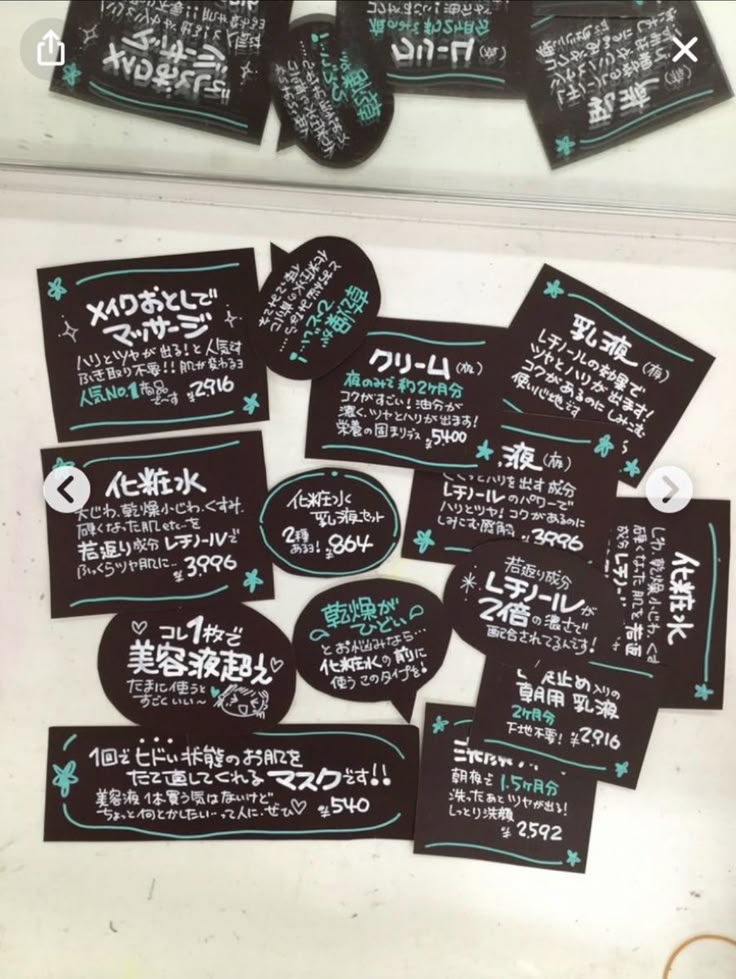 メイクおとしで
マッサージ
ハリとツヤが出る!と人気です
ふき取り不要!!肌が変わるョ
人気No.1商品でーす ¥2,916
乾燥が
ひどい…!
とお悩みなら…
化粧水の前に
クリーム(夜)
夜のみで約2ヶ月分
コクがすごい!油分が
濃く、ツヤとハリが出ます!
栄養の固まりデス ¥5,400
乳液(夜)
レチノールの効果で
ツヤとハリが出ます!
コクがあるのにしみこむ
使い心地です
化粧水
大じわ、乾燥小じわ、くすみ、
硬くなった肌etc…を
若返り成分レチノールで
ふっくらツヤ肌に… ¥3,996
化粧水
乳液セット
2種
ある!¥864
液(夜)
ハリを出す成分
レチノールのパワーで
ハリとツヤ!コクがあるのに
しみこむ ¥3,996
化粧水
しわ、乾燥小じわ、くす
硬くなった肌を若返
成分レチノー
若返り成分
レチノールが
2倍の濃さで
配合されてるんです!
コレ1枚で
美容液超え
たまに使うと
すごくいい〜
乾燥が
ひどい
とお悩みなら…
化粧水の前に
使うこのタイプを!
止め入りの
朝用 乳液
2ヶ月分
下地不要!¥2,916
1回でヒドい状態のお肌を
たて直してくれるマスクです!!
美容液1本買う気はないけど
ちょっと何とかしたい…って人に、ぜひ♡ ¥540
朝夜で1.5ヶ月分
洗ったあとツヤが出る!
しっとり洗顔
¥2,592